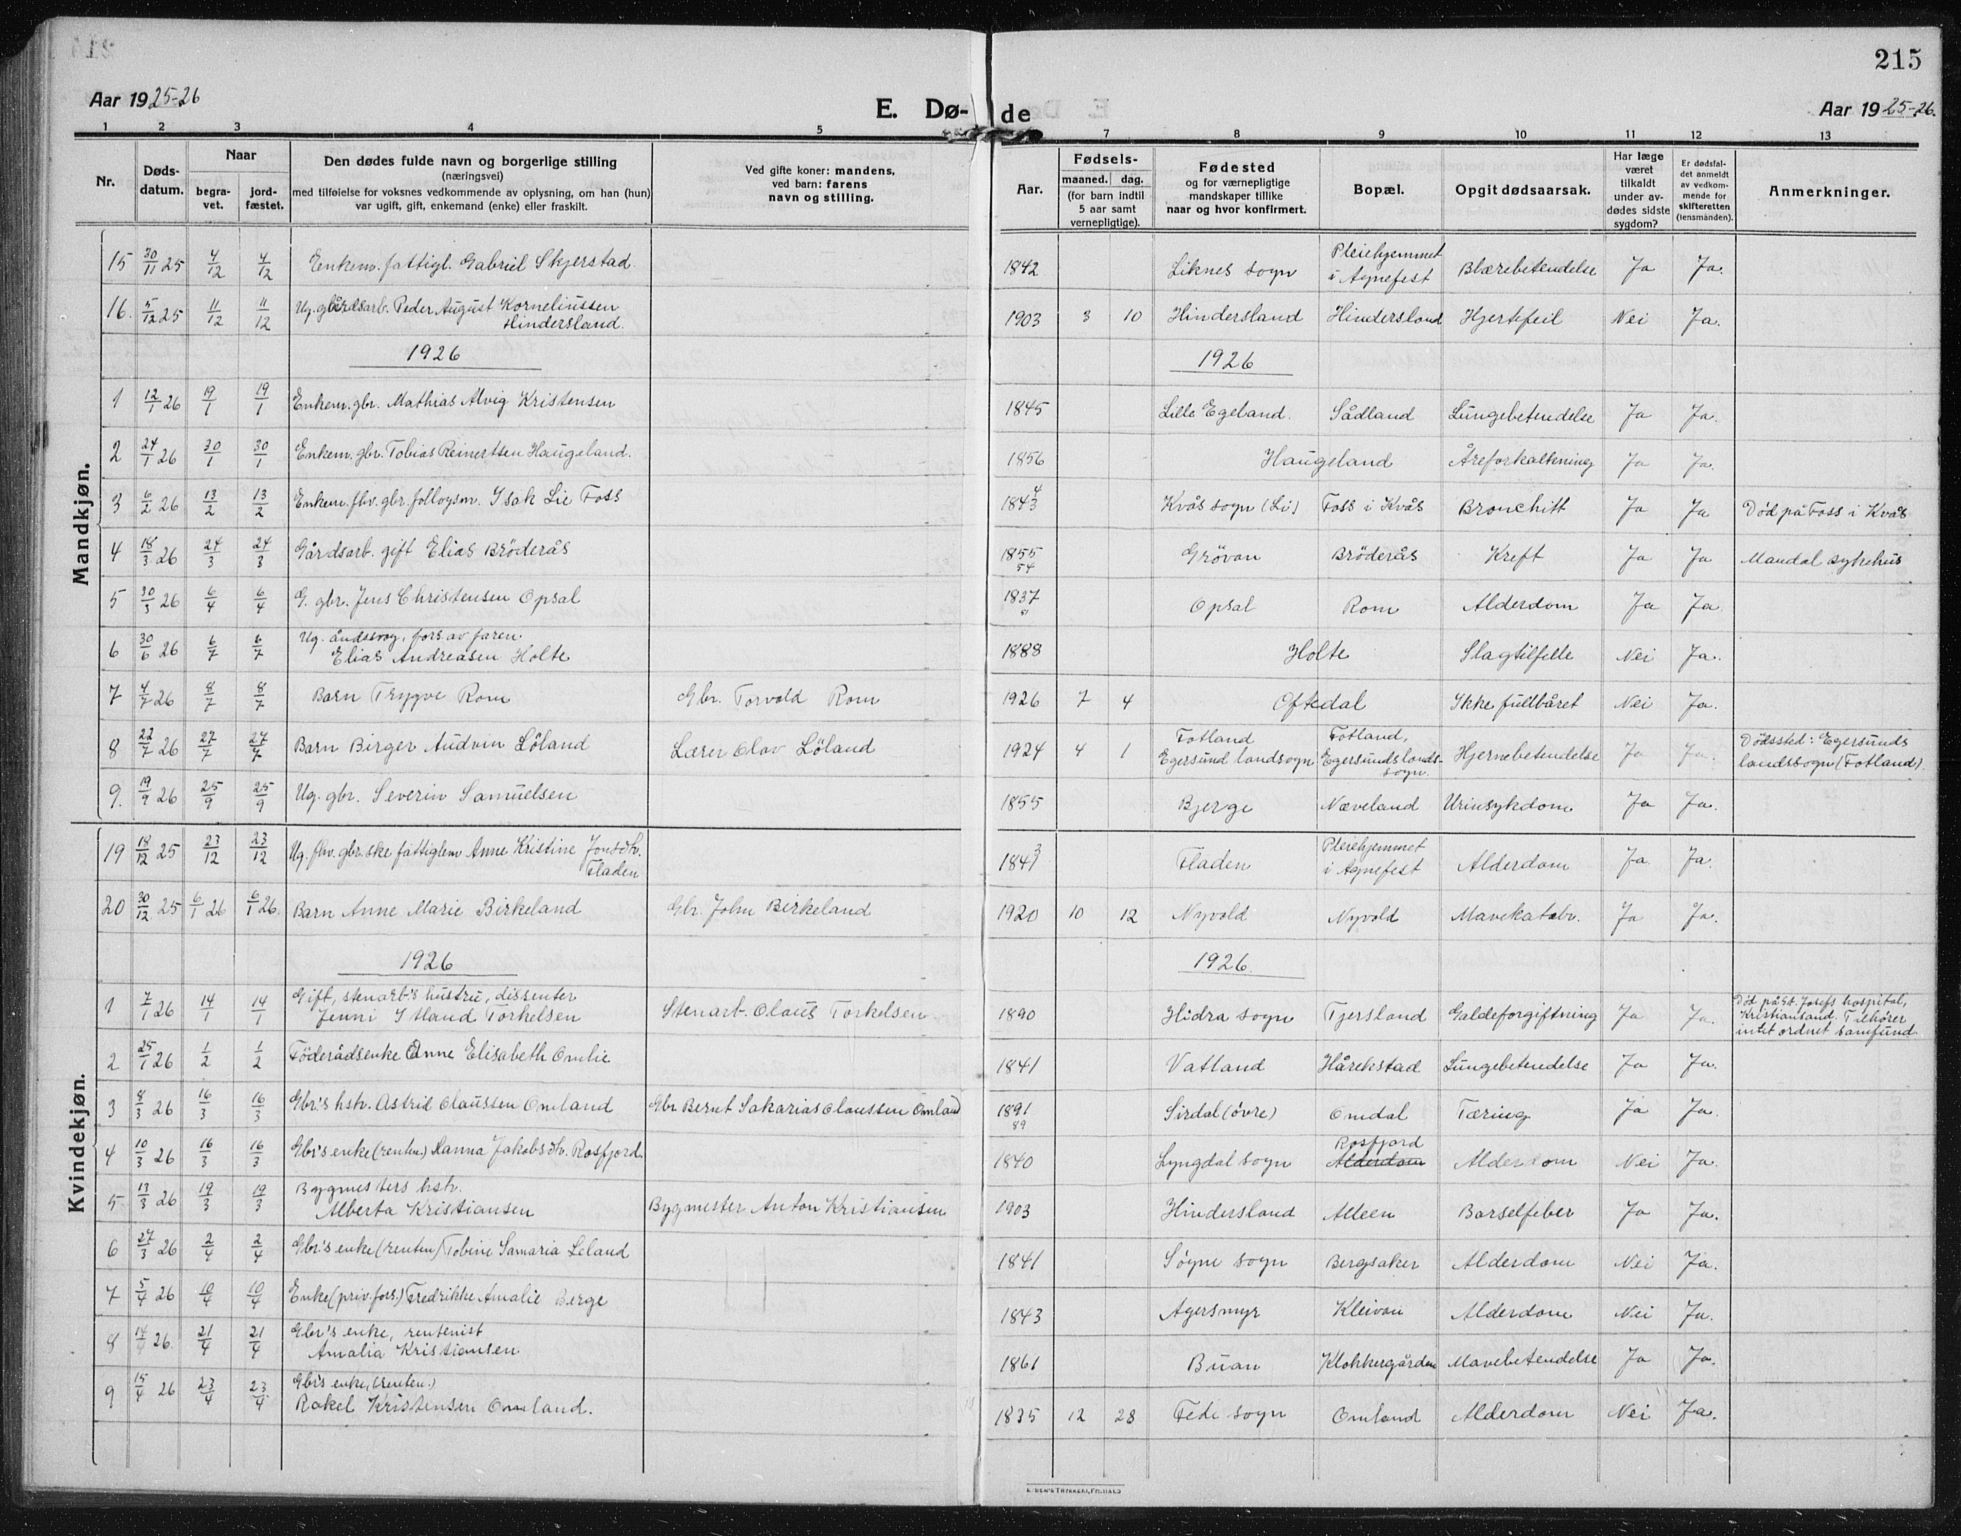 215
Aar 1925-26
E. Dø-
de
Aar 1925-26.
1 2 3 4 5 7 8 9 10 11 12 13
Nr.
Døds-
datum.
Naar
begra-
vet.
jord-
fæstet.
Den dødes fulde navn og borgerlige stilling
(næringsvei)
med tilføielse for voksnes vedkommende av oplysning, om han (hun)
var ugift, gift, enkemand (enke) eller fraskilt.
Ved gifte koner: mandens,
ved barn: farens
navn og stilling.
Aar.
Fødsels-
maaned. dag.
(for barn indtil
5 aar samt
vernepligtige).
Fødested
og for værnepligtige
mandskaper tillike
naar og hvor konfirmert.
Bopæl.
Opgit dødsaarsak.
Har læge
været
tilkaldt
under av-
dødes sidste
sygdom?
Er dødsfal-
det anmeldt
av vedkom-
mende for
skifteretten
(lensmanden).
Anmerkninger.
Mandkjøn.
15 30/11 25 4/12 4/12 Enkem. fattigl. Gabriel Skjerstad. 1842 Liknes sogn Pleiehjemmet i Agnefest Blærebetendelse Ja Ja.
16. 5/12 25 11/12 11/12 Ug. gårdsarb. Peder August Korneliussen Hindersland. 1903 3 10 Hindersland Hindersland Hjertefeil Nei Ja.
1926 1926
1 12/1 26 19/1 19/1 Enkem. gbr. Mathias Alvig Kristensen 1845 Lille Egeland. Sådland Lungebetendelse Ja Ja.
2 24/1 26 30/1 30/1 Enkem. gbr. Tobias Reinertsen Haugeland. 1856 Haugeland Åreforkaltening Ja Ja.
3 6/2 26 13/2 13/2 Enkem. fhv. gbr. follogsm. Isak Lie Foss 1843 4 Kvås sogn (Li) Foss i Kvås Bronchitt Ja Ja Død på Foss i Kvås
4 18/3 26 24/3 24/3 Gårdsarb. gift Elias Bröderås 1855 54 Grövan Bröderås Kreft Ja Ja Mandal sykehus
5 30/3 26 6/4 6/4 G. gbr. Jens Christensen Opsal 1837 Opsal Rom Alderdom Ja Ja.
6 30/6 26 6/7 6/7 Ug. åndssvag, fors. av faren. Elias Andreasen Holte 1888 Holte Slagtilfelle Nei Ja.
7 4/7 26 8/7 8/7 Barn Trygve Rom Gbr. Torvold Rom 1926 7 4 Oftedal Ikke fullbåret Nei Ja.
8 22/7 26 27/7 27/7 Barn Birger Audvin Löland Lærer Olav Löland 1924 4 1 Fotland Egersund landsogn Fotland, Egersunds lands-sogn. Hjernebetendelse Ja Ja. Dödssted: Egersunds landssogn (Fotland).
9. 19/9 26 25/9 25/9 Ug. gbr. Severin Samuelsen 1855 Bjerge Næveland Urinsykdom Ja Ja.
Kvindekjøn.
19 18/12 25 23/12 23/12 Ug. fhv. gbr.ske fattiglem Anne Kristine Jonsdtr. Fladen 1841 3 Fladen Pleiehjemmet i Agnefest Alderdom Ja Ja.
20 30/12 25 6/1 26 6/1 26. Barn Anne Marie Birkeland Gbr. John Birkeland 1920 10 12 Nyvold Nyvold Mavekatarr. Ja Ja.
1926 1926
1 7/1 26 14/1 14/1 Gift, stenarb's hustru, dissenter Jenni Itland Torkelsen Stenarb. Olaus Torkelsen 1890 Hidra sogn Tjersland Galdeforgiftning Ja Ja. Død på St. Josefs hospital, Kristiansand. Tilhører intet ordnet samfund.
2 25/1 26 1/2 1/2 Föderådsenke Anne Elisabeth Omlie 1841 Vatland Hårekstad Lungebetendelse Ja Ja.
3 8/3 26 16/3 16/3 Gbr's hstr. Astrid Claussen Omland Gbr Bernt Sakarias Claussen Omland 1891 89 Sirdal (övre) Omdal Tæring Ja Ja.
4 10/3 26 16/3 16/3 Gbr's enke (renten.) Hanna Jakobsdtr. Rosfjord. 1840 Lyngdal sogn Rosfjord Alderdom Alderdom Nei Ja.
5 13/3 26 19/3 19/3 Bygmesters hstr. Alberta Kristiansen Bygmester Anton Kristiansen 1903 Hindersland Alleen Barselfeber Ja Ja.
6 27/3 26 2/4 2/4 Gbr's enke (renten) Tobine Samaria Leland 1841 Søgne sogn Bergsaker Alderdom Nei Ja.
7 5/4 26 10/4 10/4 Enke (priv. fors.) Fredrikke Amalie Berge 1843 Agersmyr Kleivan Alderdom Nei Ja.
8 14/4 26 21/4 21/4 Gbr's enke, rentenist Amalia Kristiansen 1861 Buan Klokkergården Mavebetendelse Ja Ja.
9 15/4 26 23/4 23/4 Gbr's enke, (renten.) Rakel Kristensen Omland. 1835 12 28 Fede sogn Omland Alderdom Nei Ja.